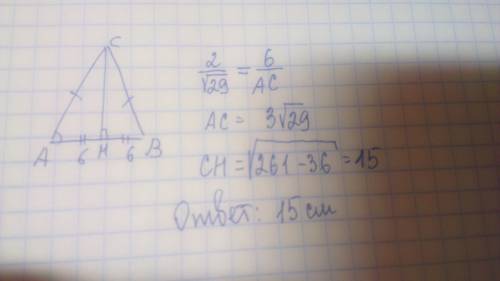 C
A 6 H 6 B
2/√29 = 6/AC
AC = 3√29
CH = √261 - 36 = 15
Ответ: 15 см